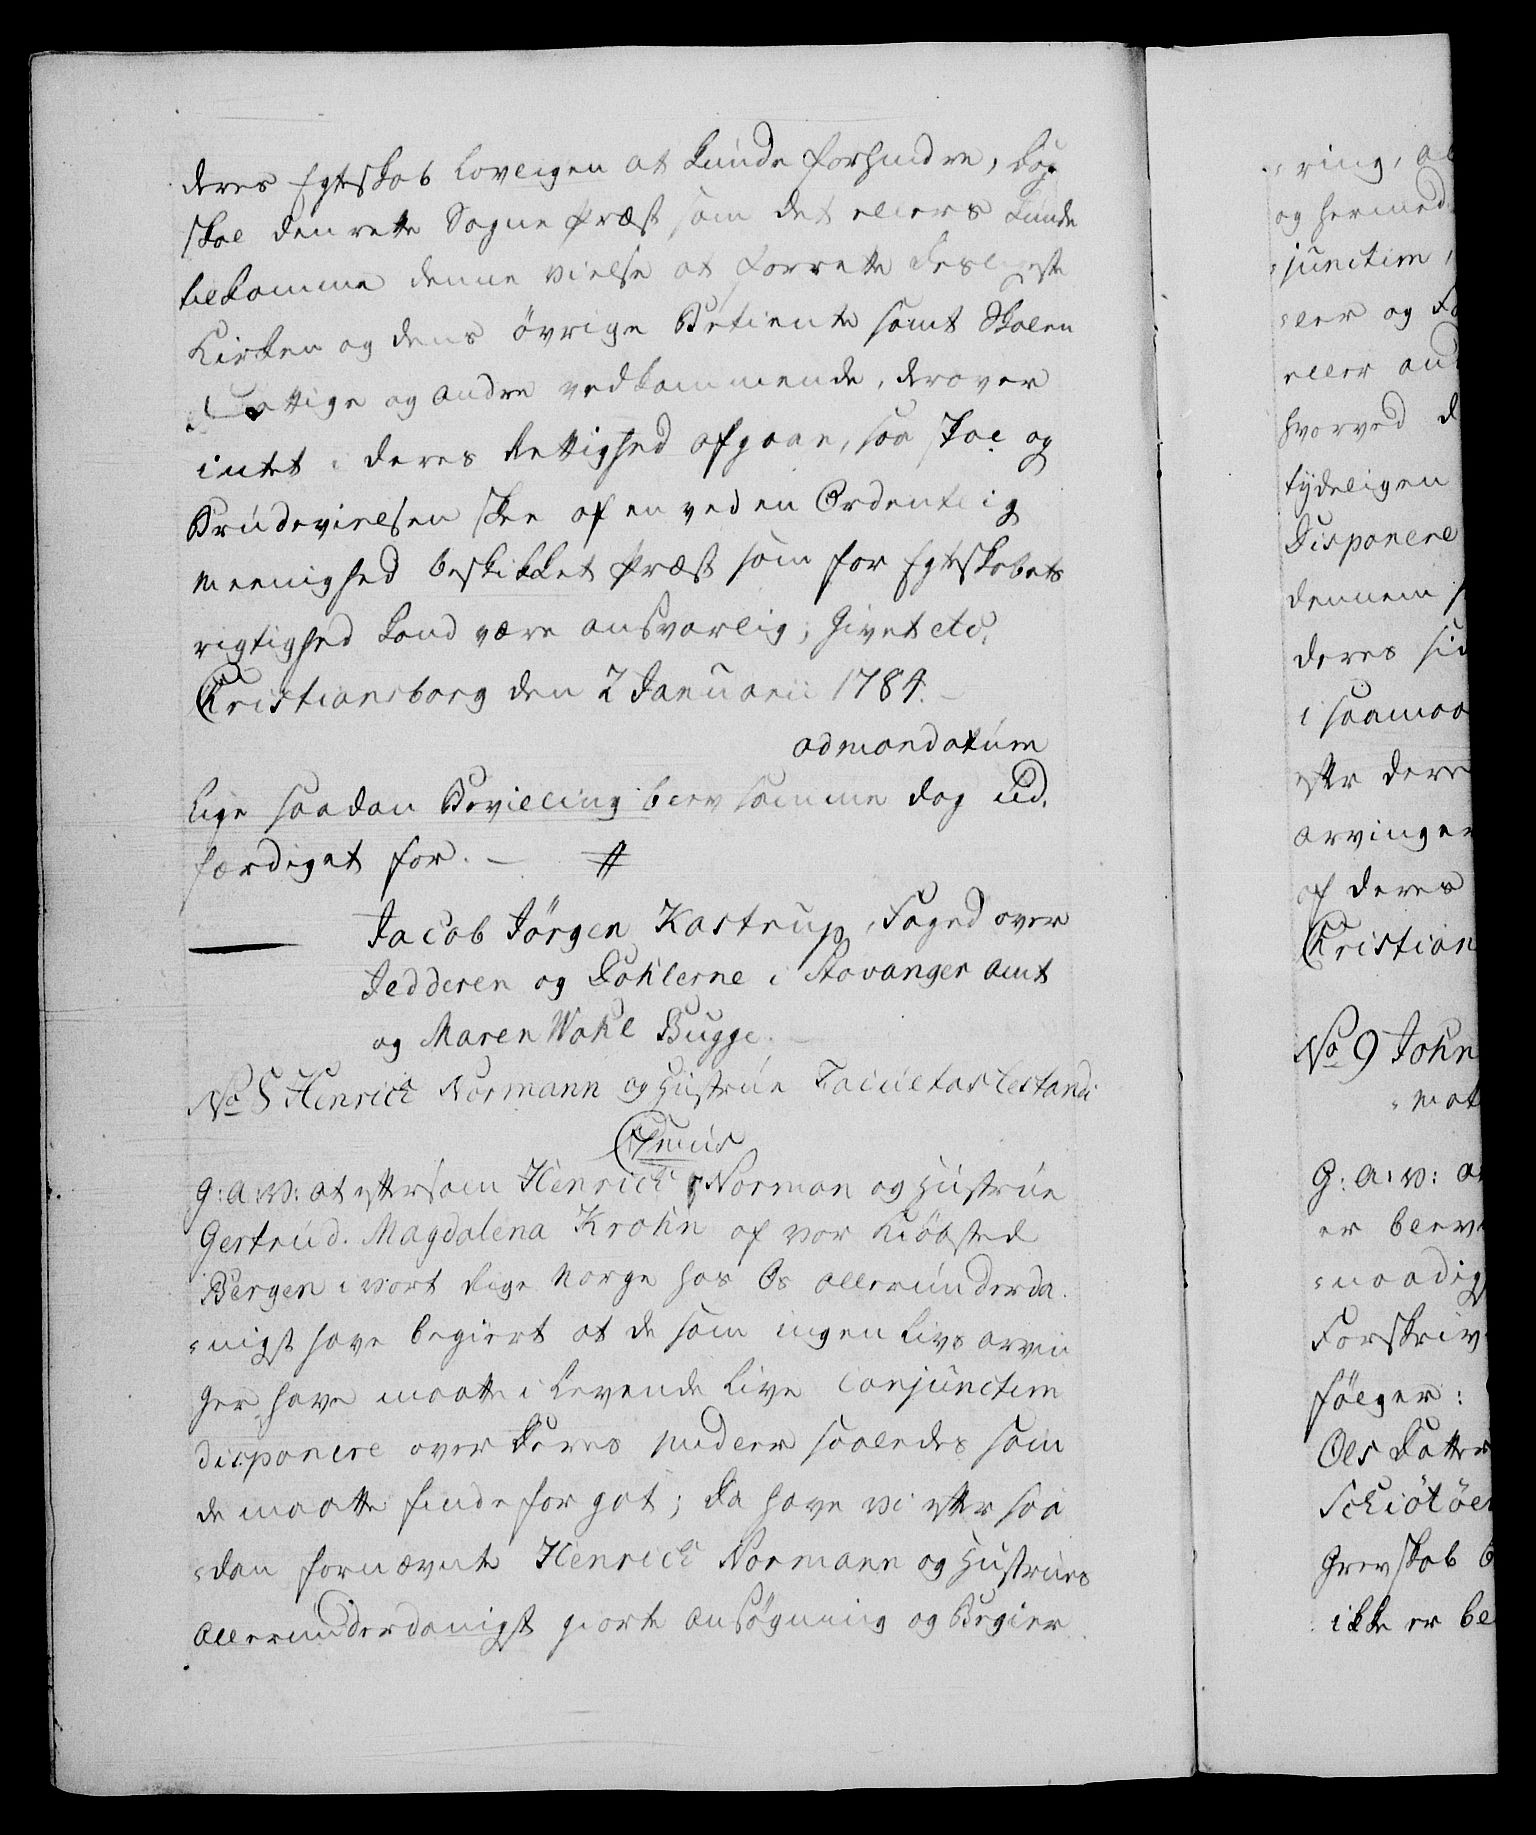 deres Egteskab lovligen at kunde forhindre, dog
skal den rette Sogne Præst som det ellers kunde
tilkomme denne vielse at forrette desligeste
Kirken og dens övrige Betiente samt Skolen
Fattige og andre vedkommende, derover
intet i deres Rettighed afgaae, saa skal og
Brudevielsen skee af en ved en Ordentlig
Meenighed beskikket Præst som for Egteskabets
rigtighed kand være ansvarlig; Givet etc.
Christiansborg den 2 Januarii 1784.
ad mandatum
Lige saadan Bevilling blev samme dag ud.
færdiget for. — #
Jacob Jörgen Kastrup, Foged over
Jedderen og Dahlerne i Stavanger Amt
og Maren Wohl Bugge.
No 8 Henrich Normann og Hustrue Facultas testandi
G: A: W: at eftersom Henrich Norman og Hustrue
Gertrud Magdalena Krohn af vor Kiöbsted
Bergen i vort Rige Norge hos Os allerunderda.
=nigst have begiert at de som ingen Livs arvin
ger have maatte i levende Live conjunctim
disponere over deres midler saaledes som
de maatte finde for got; Da have vi efter saa
=dan fornævnte Henrich Normann og Hustrues
allerunderdanigst giorte Ansøgning og Begier
=ring, al
og hermed
=junctim,
=ler og Fa
eller and
hvorved d
tydeligen
Disponere
dennem
deres sid
i saamaa
efter dere
arvinger
af deres
Christian
No 9 John
=mat
G: A: W: a
er blev
=naadig
Forskriv
fölger:
Ols Datter
Schiötöe
Grevskab
ikke er be